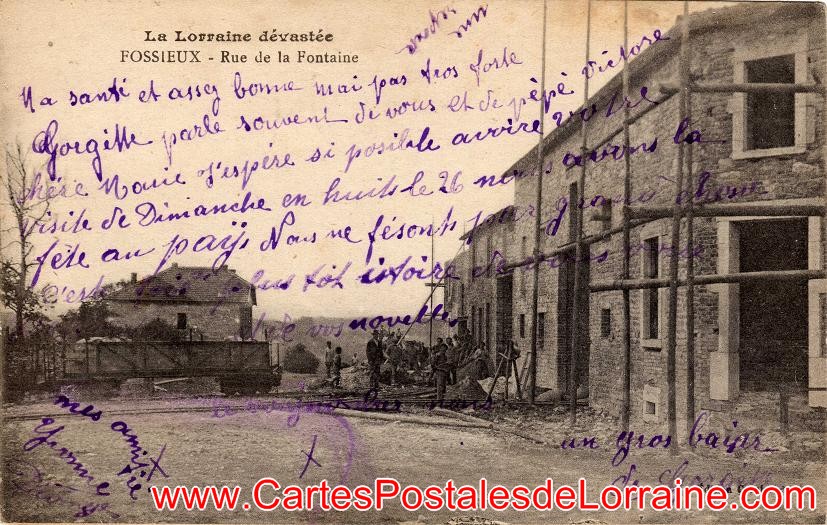 La Lorraine dévastée
FOSSIEUX - Rue de la Fontaine
Ma santé et assez bonne mai pas tros forte
Gorgitte parle souvent de vous et de pépé victore
chére Marie J'espére si posible avoire votre
visite de Dimanche en huits le 26 nous avons la
fête au païjs Nous ne fésonts pour grand chause
C'est plus tôt istoire de vous vous
de vos nouvelles
mes amitié
Yvonne
un gros baiser
de
www.CartesPostalesdeLorraine.com